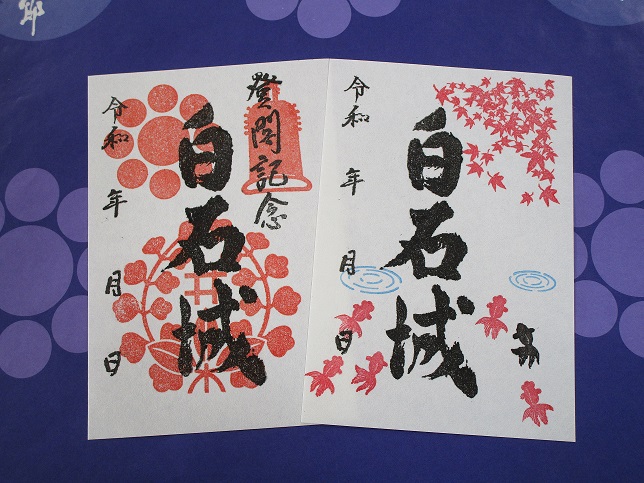 登閣記念
白石城
令和 年 月 日
令和 年 月 日
白石城